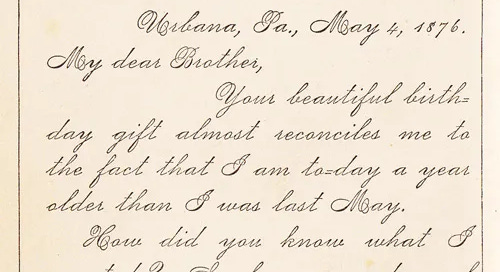 Urbana, Pa., May 4, 1876.
My dear Brother,
Your beautiful birth=
day gift almost reconciles me to
the fact that I am to=day a year
older than I was last May.
How did you know what I